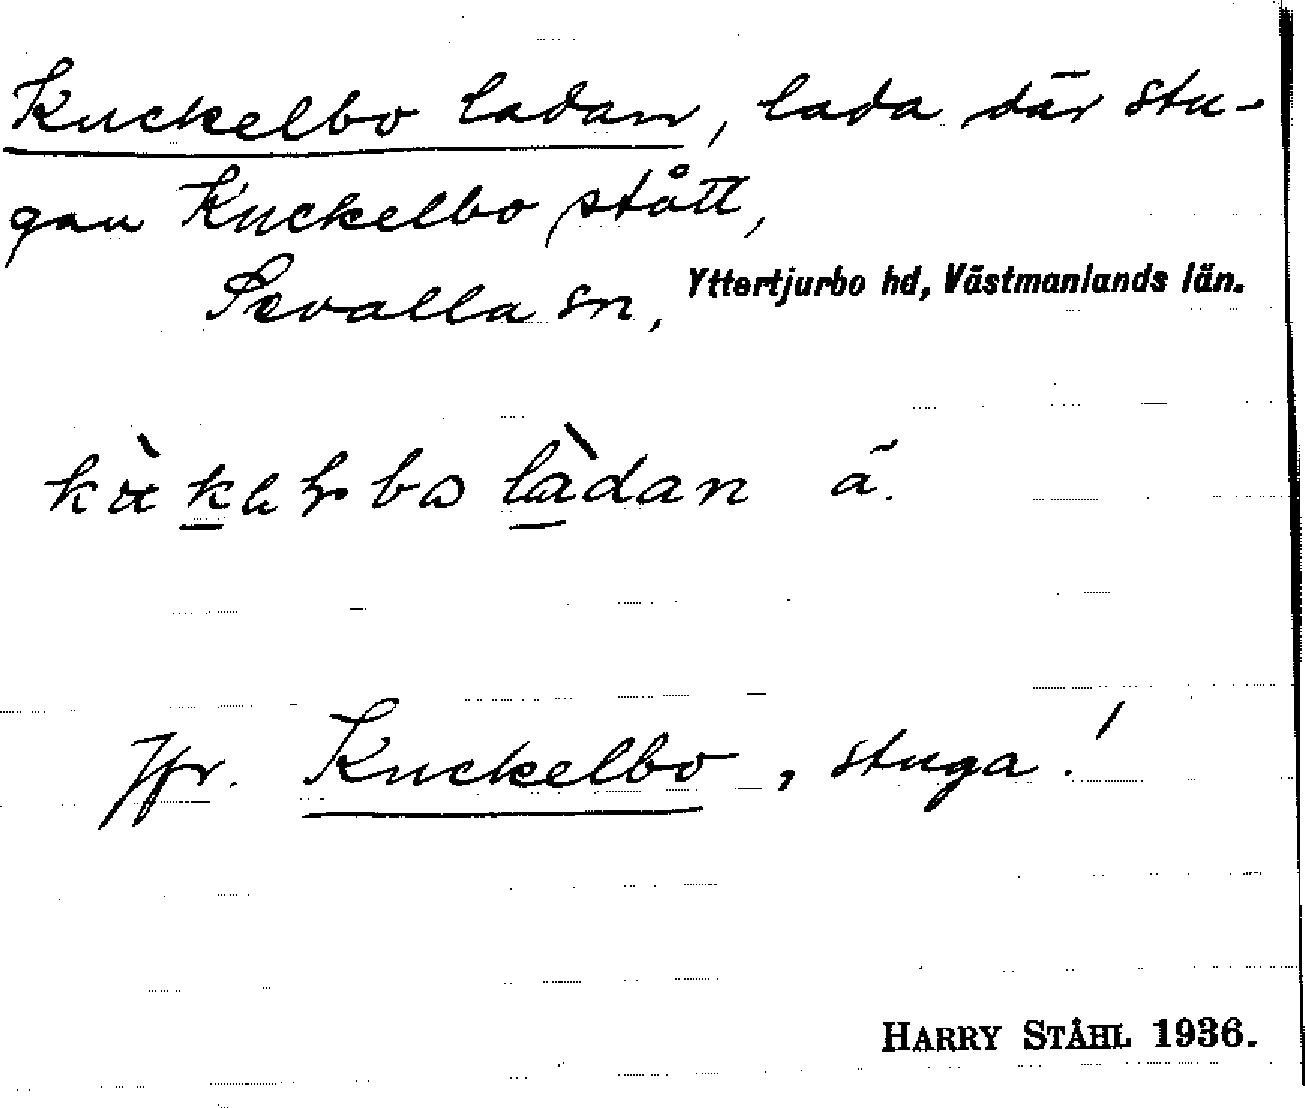 Kuckelbo ladan, lada där stu-
gan Kuckelbo stått,
Sevalla sn, Yttertjurbo hd, Västmanlands län.
ladan ã.
Jfr. Kuckelbo, stuga!
HARRY STÅHL 1936.